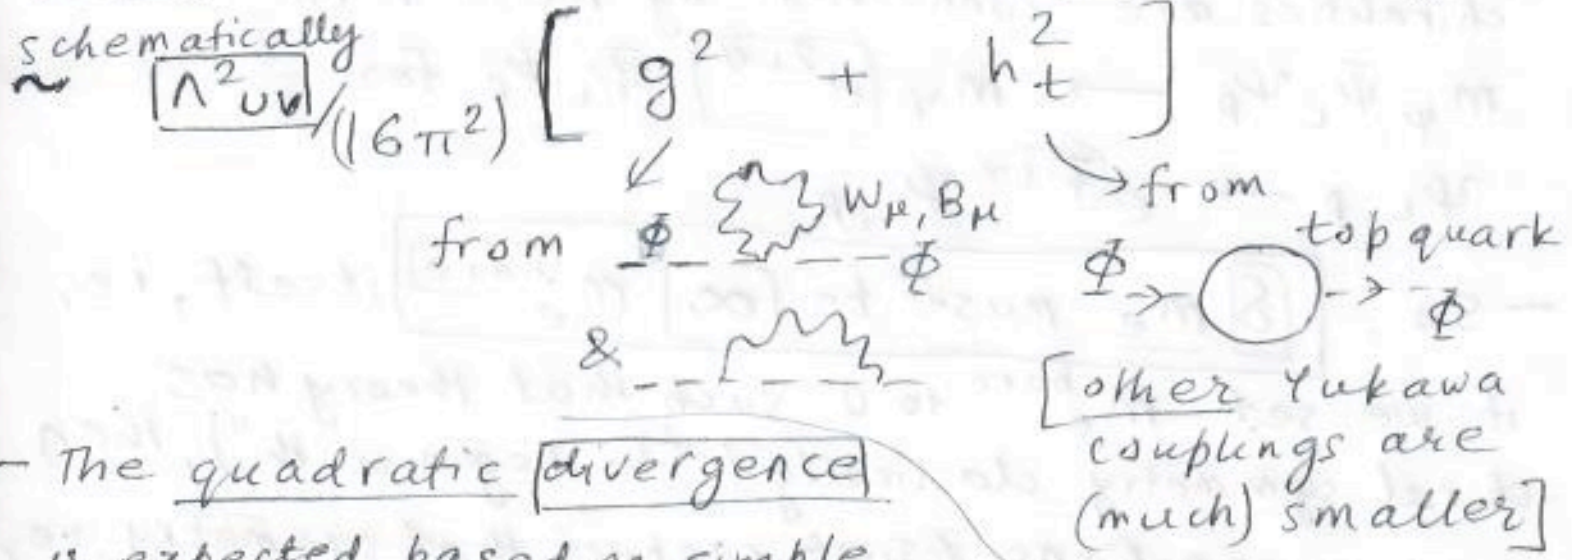 schematically
~ Λ²UV/(16π²) [ g² + h²t ]
from Φ Wμ, Bμ Φ
from
top quark
Φ Φ
&
[other Yukawa
couplings are
(much) smaller]
- The quadratic divergence
is expected based on simple